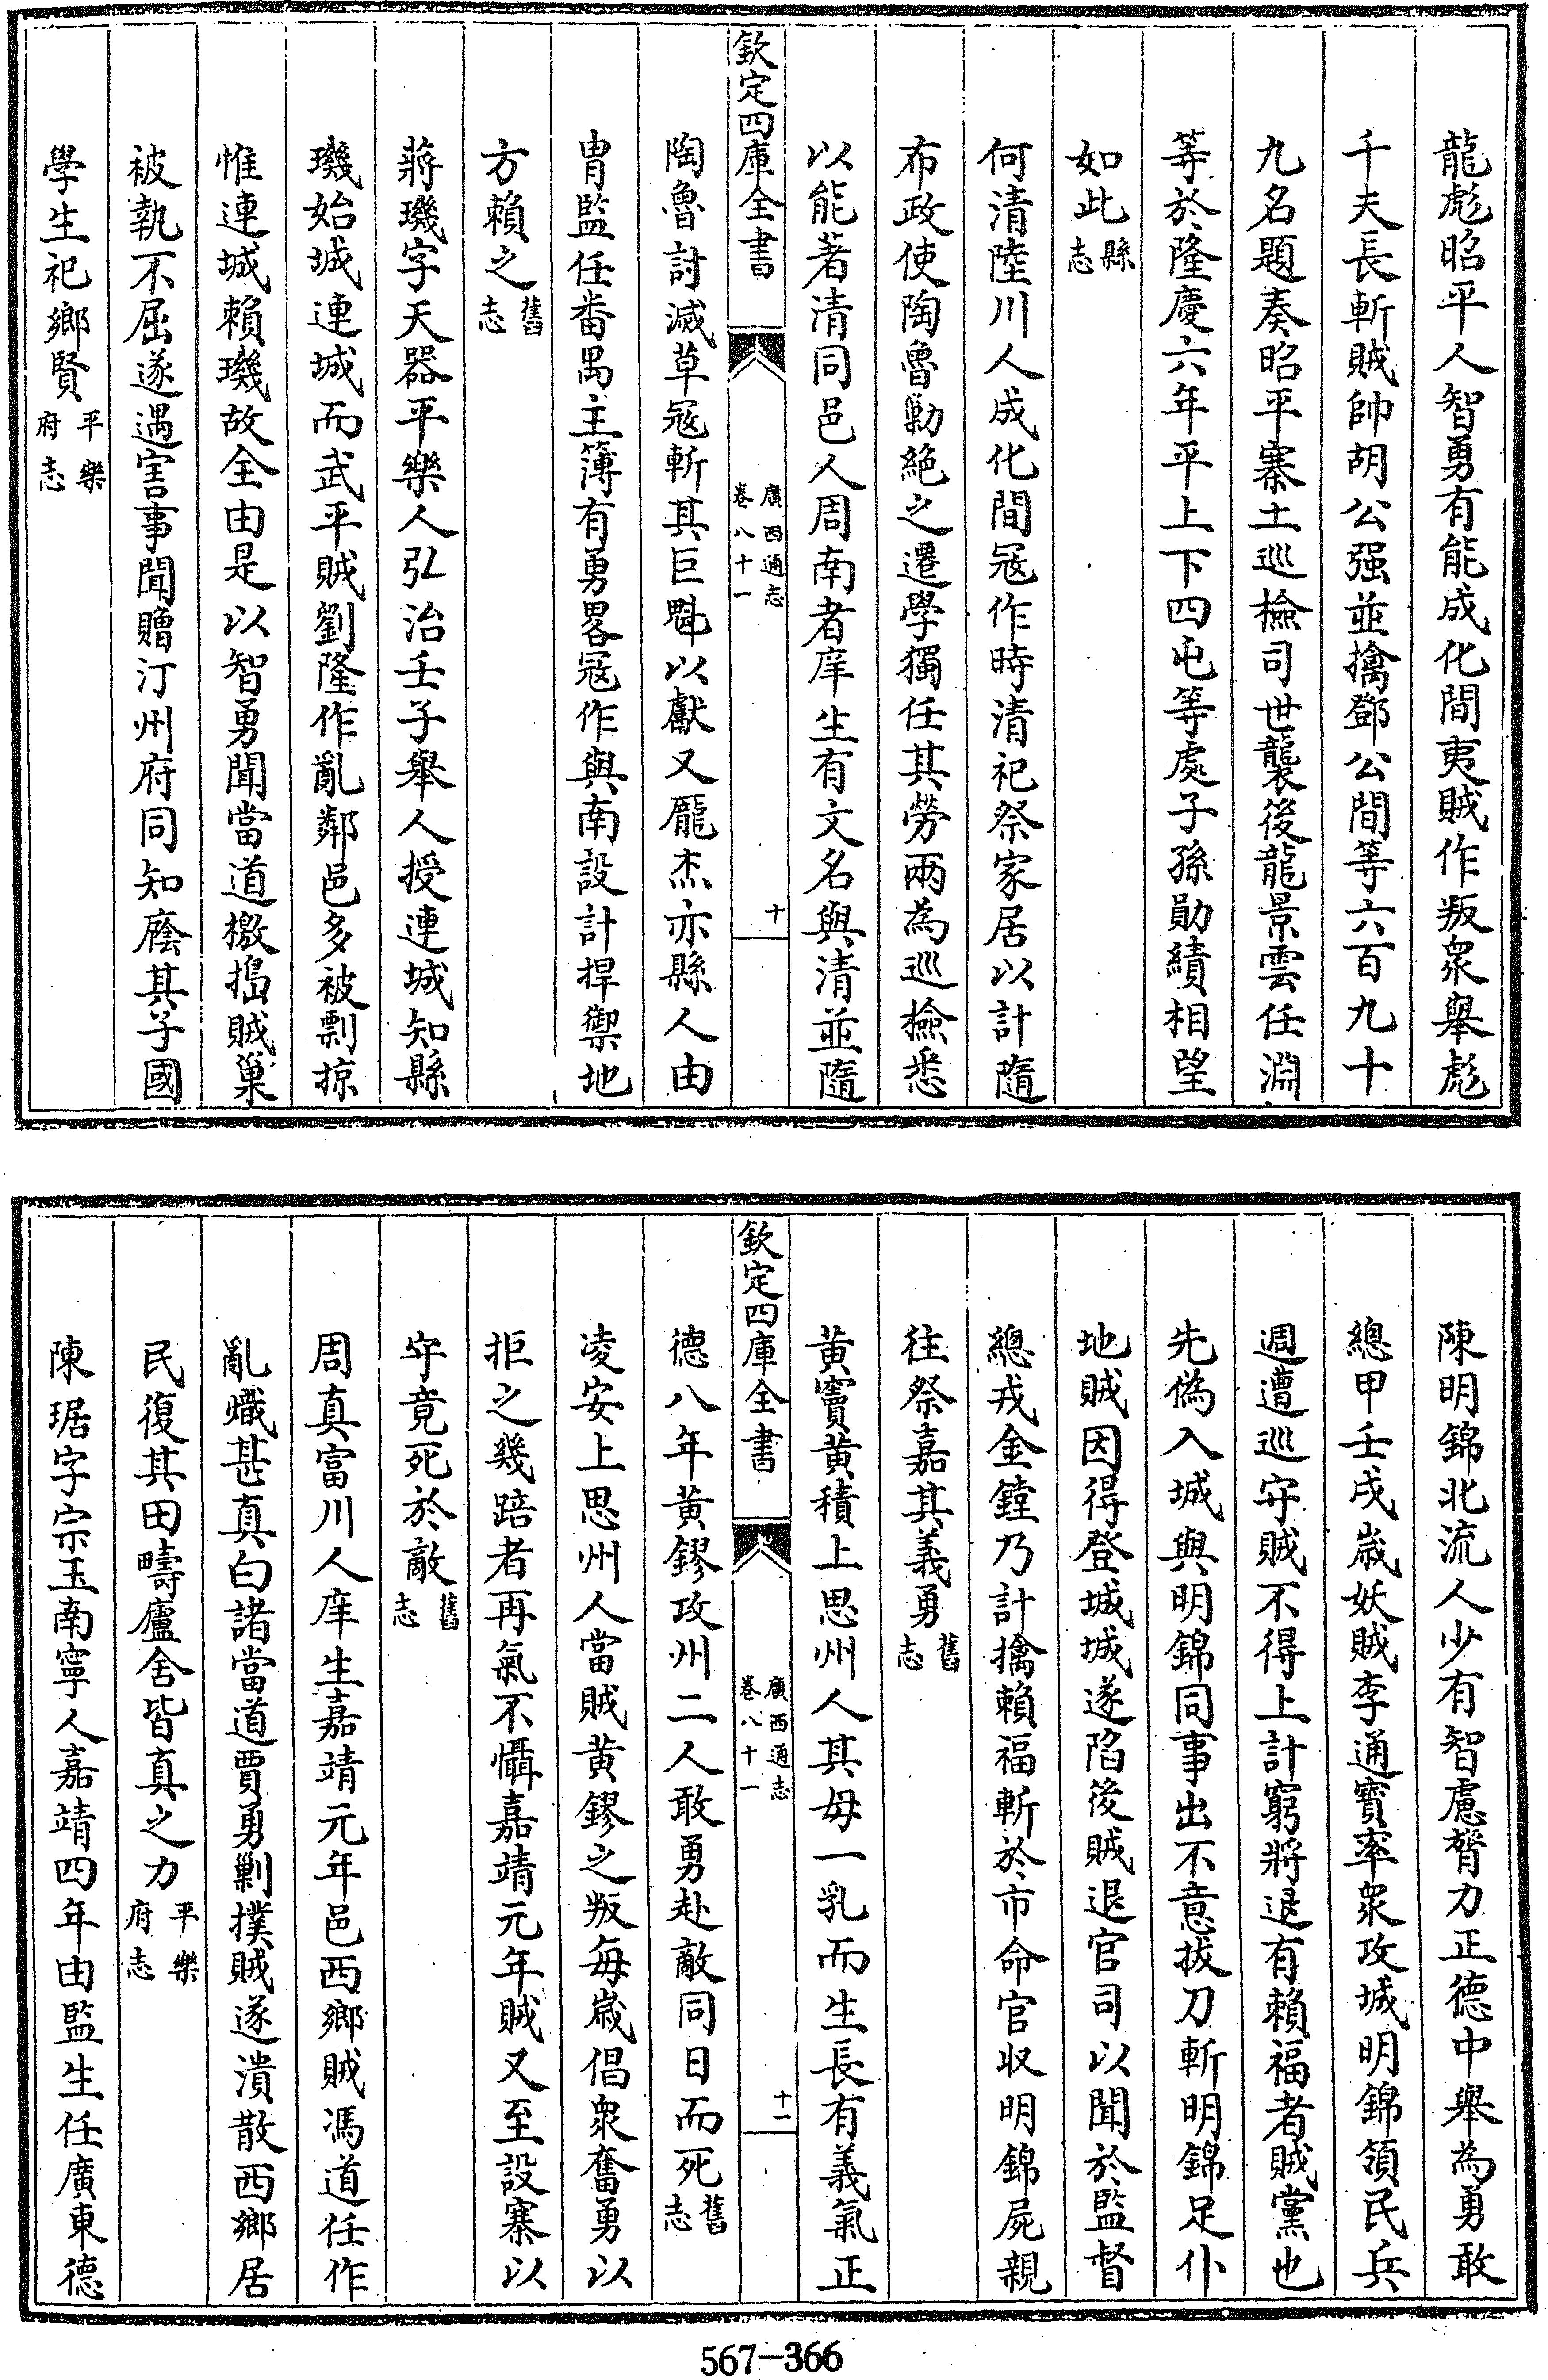 龍彪昭平人智勇有能成化間夷賊作叛衆舉彪
千夫長斬賊帥胡公强並擒鄧公間等六百九十
九名題奏昭平寨土巡檢司世襲後龍景雲任淵
等於隆慶六年平上下四屯等處子孫勛績相望
如此縣志
何清陸川人成化間冦作時清祀祭家居以計隨
布政使陶魯勦絶之遷學獨任其勞兩為巡檢悉
以能著清同邑人周南者庠生有文名與清並隨
欽定四庫全書
廣西通志
卷八十一
十
陶魯討滅草冦斬其巨魁以獻又龎杰亦縣人由
胄監任畨禺主簿有勇畧冦作與南設計捍禦地
方賴之舊志
蔣璣字天器平樂人弘治壬子舉人授連城知縣
璣始城連城而武平賊劉隆作亂鄰邑多被剽掠
惟連城賴璣故全由是以智勇聞當道檄搗賊巢
被執不屈遂遇害事聞贈汀州府同知廕其子國
學生祀鄉賢平樂府志
陳明錦北流人少有智慮膂力正德中舉為勇敢
總甲壬戌嵗妖賊李通寳率衆攻城明錦領民兵
週遭巡守賊不得上計窮將退有賴福者賊黨也
先偽入城與明錦同事出不意拔刀斬明錦足仆
地賊因得登城城遂陷後賊退官司以聞於監督
總戎金鏜乃計擒賴福斬於市命官収明錦屍親
往祭嘉其義勇舊志
黄竇黄積上思州人其母一乳而生長有義氣正
欽定四庫全書
廣西通志
卷八十一
十一
德八年黄鏐攻州二人敢勇赴敵同日而死舊志
凌安上思州人當賊黄鏐之叛每嵗倡衆奮勇以
拒之幾踣者再氣不懾嘉靖元年賊又至設寨以
守竟死於敵舊志
周真富川人庠生嘉靖元年邑西鄉賊馮道任作
亂熾甚真白諸當道賈勇剿撲賊遂潰散西鄉居
民復其田疇廬舍皆真之力平樂府志
陳琚字宗玉南寧人嘉靖四年由監生任廣東德
567-366